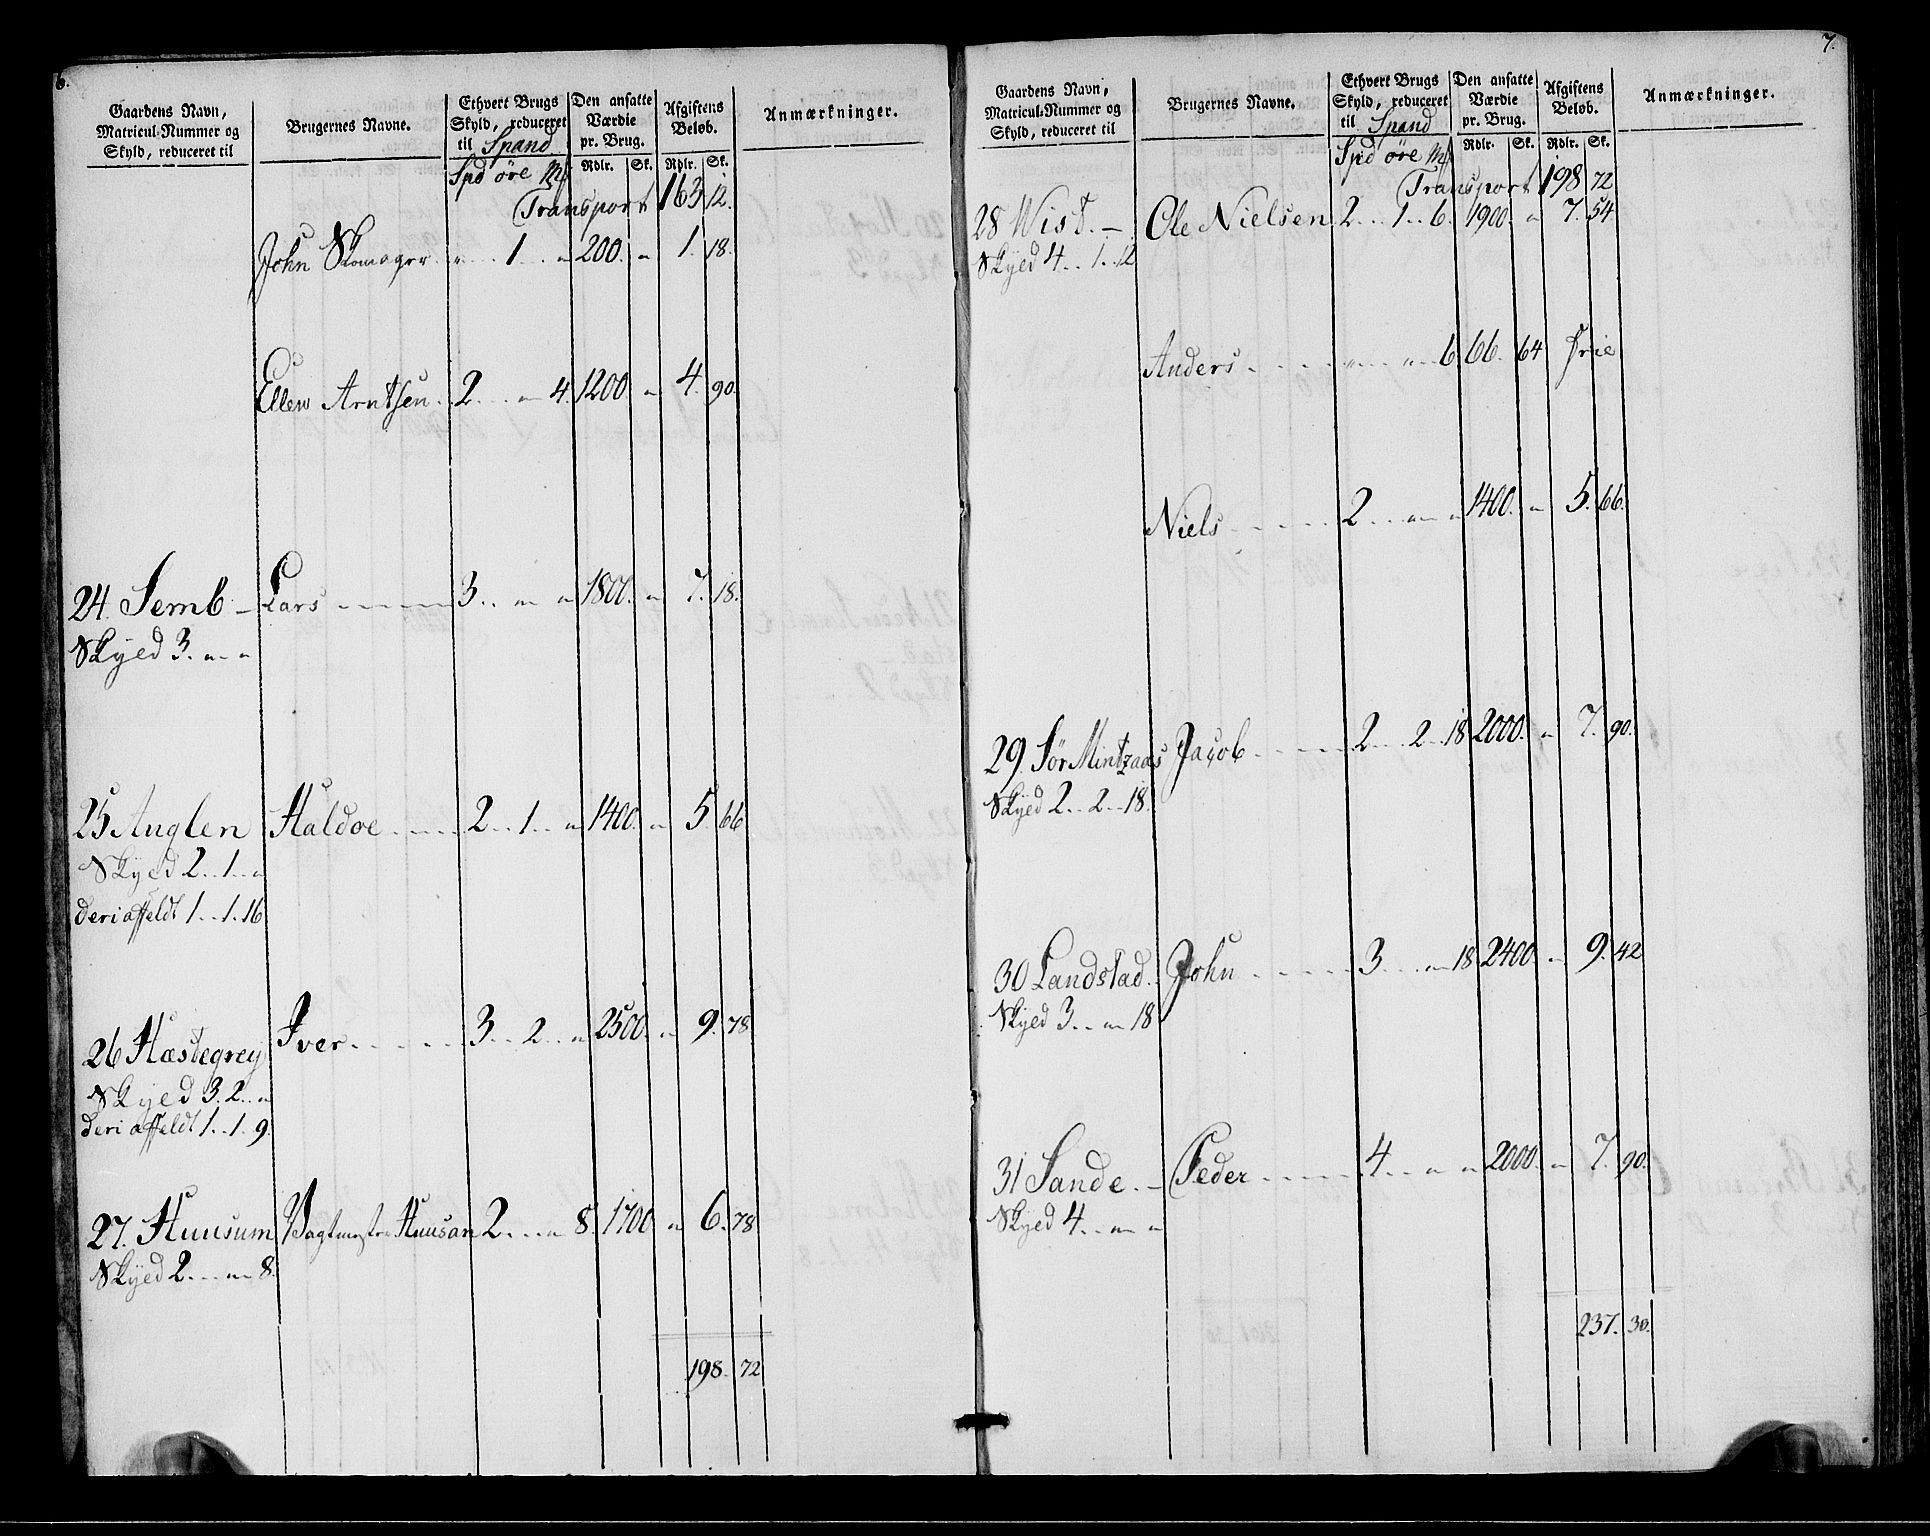 6.
Gaardens Navn, Matricul-Nummer og Skyld, reduceret til
Brugernes Navne.
Ethvert Brugs Skyld, reduceret til Spand
Den ansatte Værdie pr. Brug.
Afgiftens Beløb.
Anmærkninger.
Spd øre Mk Rdlr. Sk. Rdlr. Sk.
Transport 163 12.
John Skomager. „ 1 „ 200. „ 1. 18.
Ellew Arntsen. 2 „ 4. 1200 „ 4. 90.
24. Semb – Lars 3 „ „ 1800. „ 7. 18.
Skyed 3. „ „
25 Auglen Haldoe 2 1 „ 1400. „ 5. 66
Skyed 2 1 „
deri affeldt 1 1 16
26 Hæstegrey Iver 3 2 „ 2500. „ 9. 78
Skyed 3. 2 „
deri affeldt 1 1 9.
27. Huusum Vagtmester Huusan 2 „ 8. 1700 „ 6. 78
Skyed 2 „ 8.
198. 72
7.
Gaardens Navn, Matricul-Nummer og Skyld, reduceret til
Brugernes Navne.
Ethvert Brugs Skyld, reduceret til Spand
Den ansatte Værdie pr. Brug.
Afgiftens Beløb.
Anmærkninger.
Spd øre Mk Rdlr. Sk. Rdlr. Sk.
Transport 198 72
28 Wist. – Ole Nielsen 2 1 6. 1900. „ 7. 54
Skyed 4 1 12
Anders „ „ 6 66. 64 Frie
Niels 2 „ „ 1400. „ 5. 66.
29. Sør Mintzaas Jacob 2 2 18 2000. „ 7. 90.
Skyed 2 2 18.
30 Landstad. John 3 „ 18 2400 „ 9. 42
Skyed 3 „ 18
31 Sande. – Peder 4 „ „ 2000. „ 7. 90.
Skyed 4 „ „
237. 30.